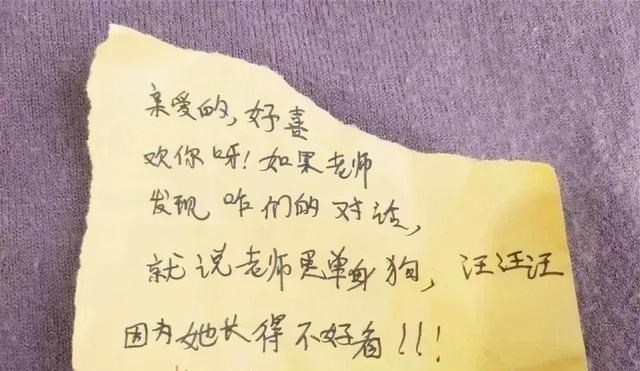 亲爱的,好喜
欢你呀!如果老师
发现咱们的对话,
就说老师是单身狗,汪汪汪
因为她长得不好看!!!